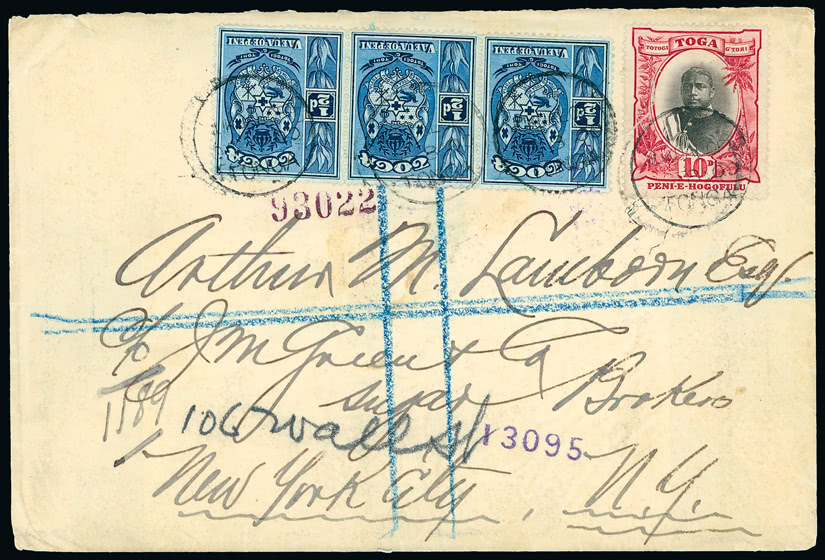 TOGA
½d
VAEUA·OE·PENI
TOGA
½d
VAEUA·OE·PENI
TOGA
½d
VAEUA·OE·PENI
TOTOGI TOGA
10D
PENI-E-HOGOFULU
TONGA
TONGA
93022
Arthur M. Lamborn Esq.
c/o J M Green & Co
Sugar Brokers
1189
106 Wall St 13095
New York City, N.Y.